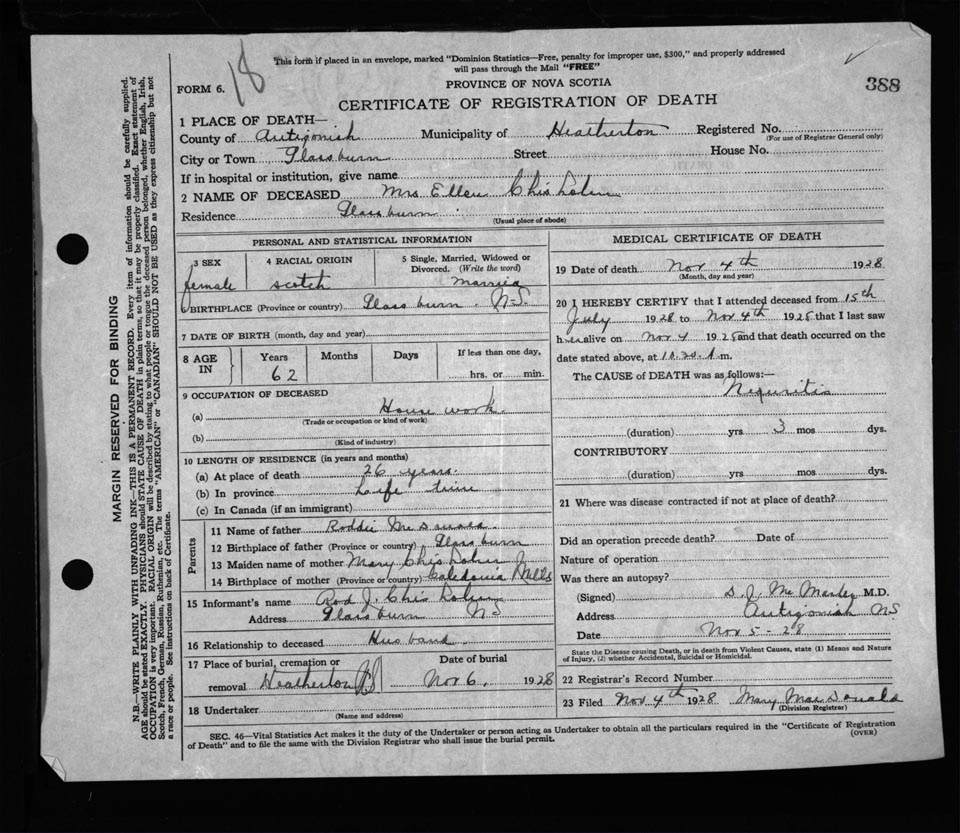 18
This form if placed in an envelope, marked "Dominion Statistics—Free, penalty for improper use, $300," and properly addressed
will pass through the Mail "FREE"
388
FORM 6.
PROVINCE OF NOVA SCOTIA
CERTIFICATE OF REGISTRATION OF DEATH
1 PLACE OF DEATH—
County of Antigonish Municipality of Heatherton Registered No.
(For use of Registrar General only)
City or Town Glassburn Street House No.
If in hospital or institution, give name
2 NAME OF DECEASED Mrs Ellen Chisholm
Residence Glassburn
(Usual place of abode)
PERSONAL AND STATISTICAL INFORMATION
3 SEX female
4 RACIAL ORIGIN scotch
5 Single, Married, Widowed or Divorced. (Write the word) Married
6 BIRTHPLACE (Province or country) Glassburn. N.S.
7 DATE OF BIRTH (month, day and year)
8 AGE IN Years 62 Months Days If less than one day, hrs. or min.
9 OCCUPATION OF DECEASED
(a) House work.
(Trade or occupation or kind of work)
(b)
(Kind of industry)
10 LENGTH OF RESIDENCE (in years and months)
(a) At place of death 26 years.
(b) In province Life time
(c) In Canada (if an immigrant)
Parents
11 Name of father Roddie
12 Birthplace of father (Province or country) Glassburn
13 Maiden name of mother Mary Chisholm
14 Birthplace of mother (Province or country) Caledonia Mills
15 Informant's name Rod J. Chisholm
Address Glassburn NS
16 Relationship to deceased Husband
17 Place of burial, cremation or removal Heatherton
Date of burial Nov 6, 1928
18 Undertaker
(Name and address)
MEDICAL CERTIFICATE OF DEATH
19 Date of death Nov 4th 1928
(Month, day and year)
20 I HEREBY CERTIFY that I attended deceased from 15th
July 1928 to Nov 4th 1928 that I last saw
her alive on Nov 4 1928 and that death occurred on the
date stated above, at 10.30 A.m.
The CAUSE of DEATH was as follows:—
(duration) yrs 3 mos dys.
CONTRIBUTORY
(duration) yrs mos dys.
21 Where was disease contracted if not at place of death?
Did an operation precede death? Date of
Nature of operation
Was there an autopsy?
(Signed) M.D.
Address Antigonish NS
Date Nov 5 - 28
State the Disease causing Death, or in death from Violent Causes, state (1) Means and Nature
of Injury, (2) whether Accidental, Suicidal or Homicidal.
22 Registrar's Record Number
23 Filed Nov 4th 1928 Mary MacDonald
(Division Registrar)
SEC. 46—Vital Statistics Act makes it the duty of the Undertaker or person acting as Undertaker to obtain all the particulars required in the "Certificate of Registration
of Death" and to file the same with the Division Registrar who shall issue the burial permit.
(OVER)
MARGIN RESERVED FOR BINDING
N.B.—WRITE PLAINLY WITH UNFADING INK—THIS IS A PERMANENT RECORD. Every item of information should be carefully supplied.
AGE should be stated EXACTLY. PHYSICIANS should STATE CAUSE OF DEATH in plain terms, so that it may be properly classified. Exact statement of
OCCUPATION is very important. RACIAL ORIGIN will be described by stating to what people or tongue the deceased person belonged, whether English, Irish,
Scotch, French, German, Russian, Ruthenian, etc. The terms "AMERICAN" or "CANADIAN" SHOULD NOT BE USED as they express citizenship but not
a race or people. See instructions on back of Certificate.